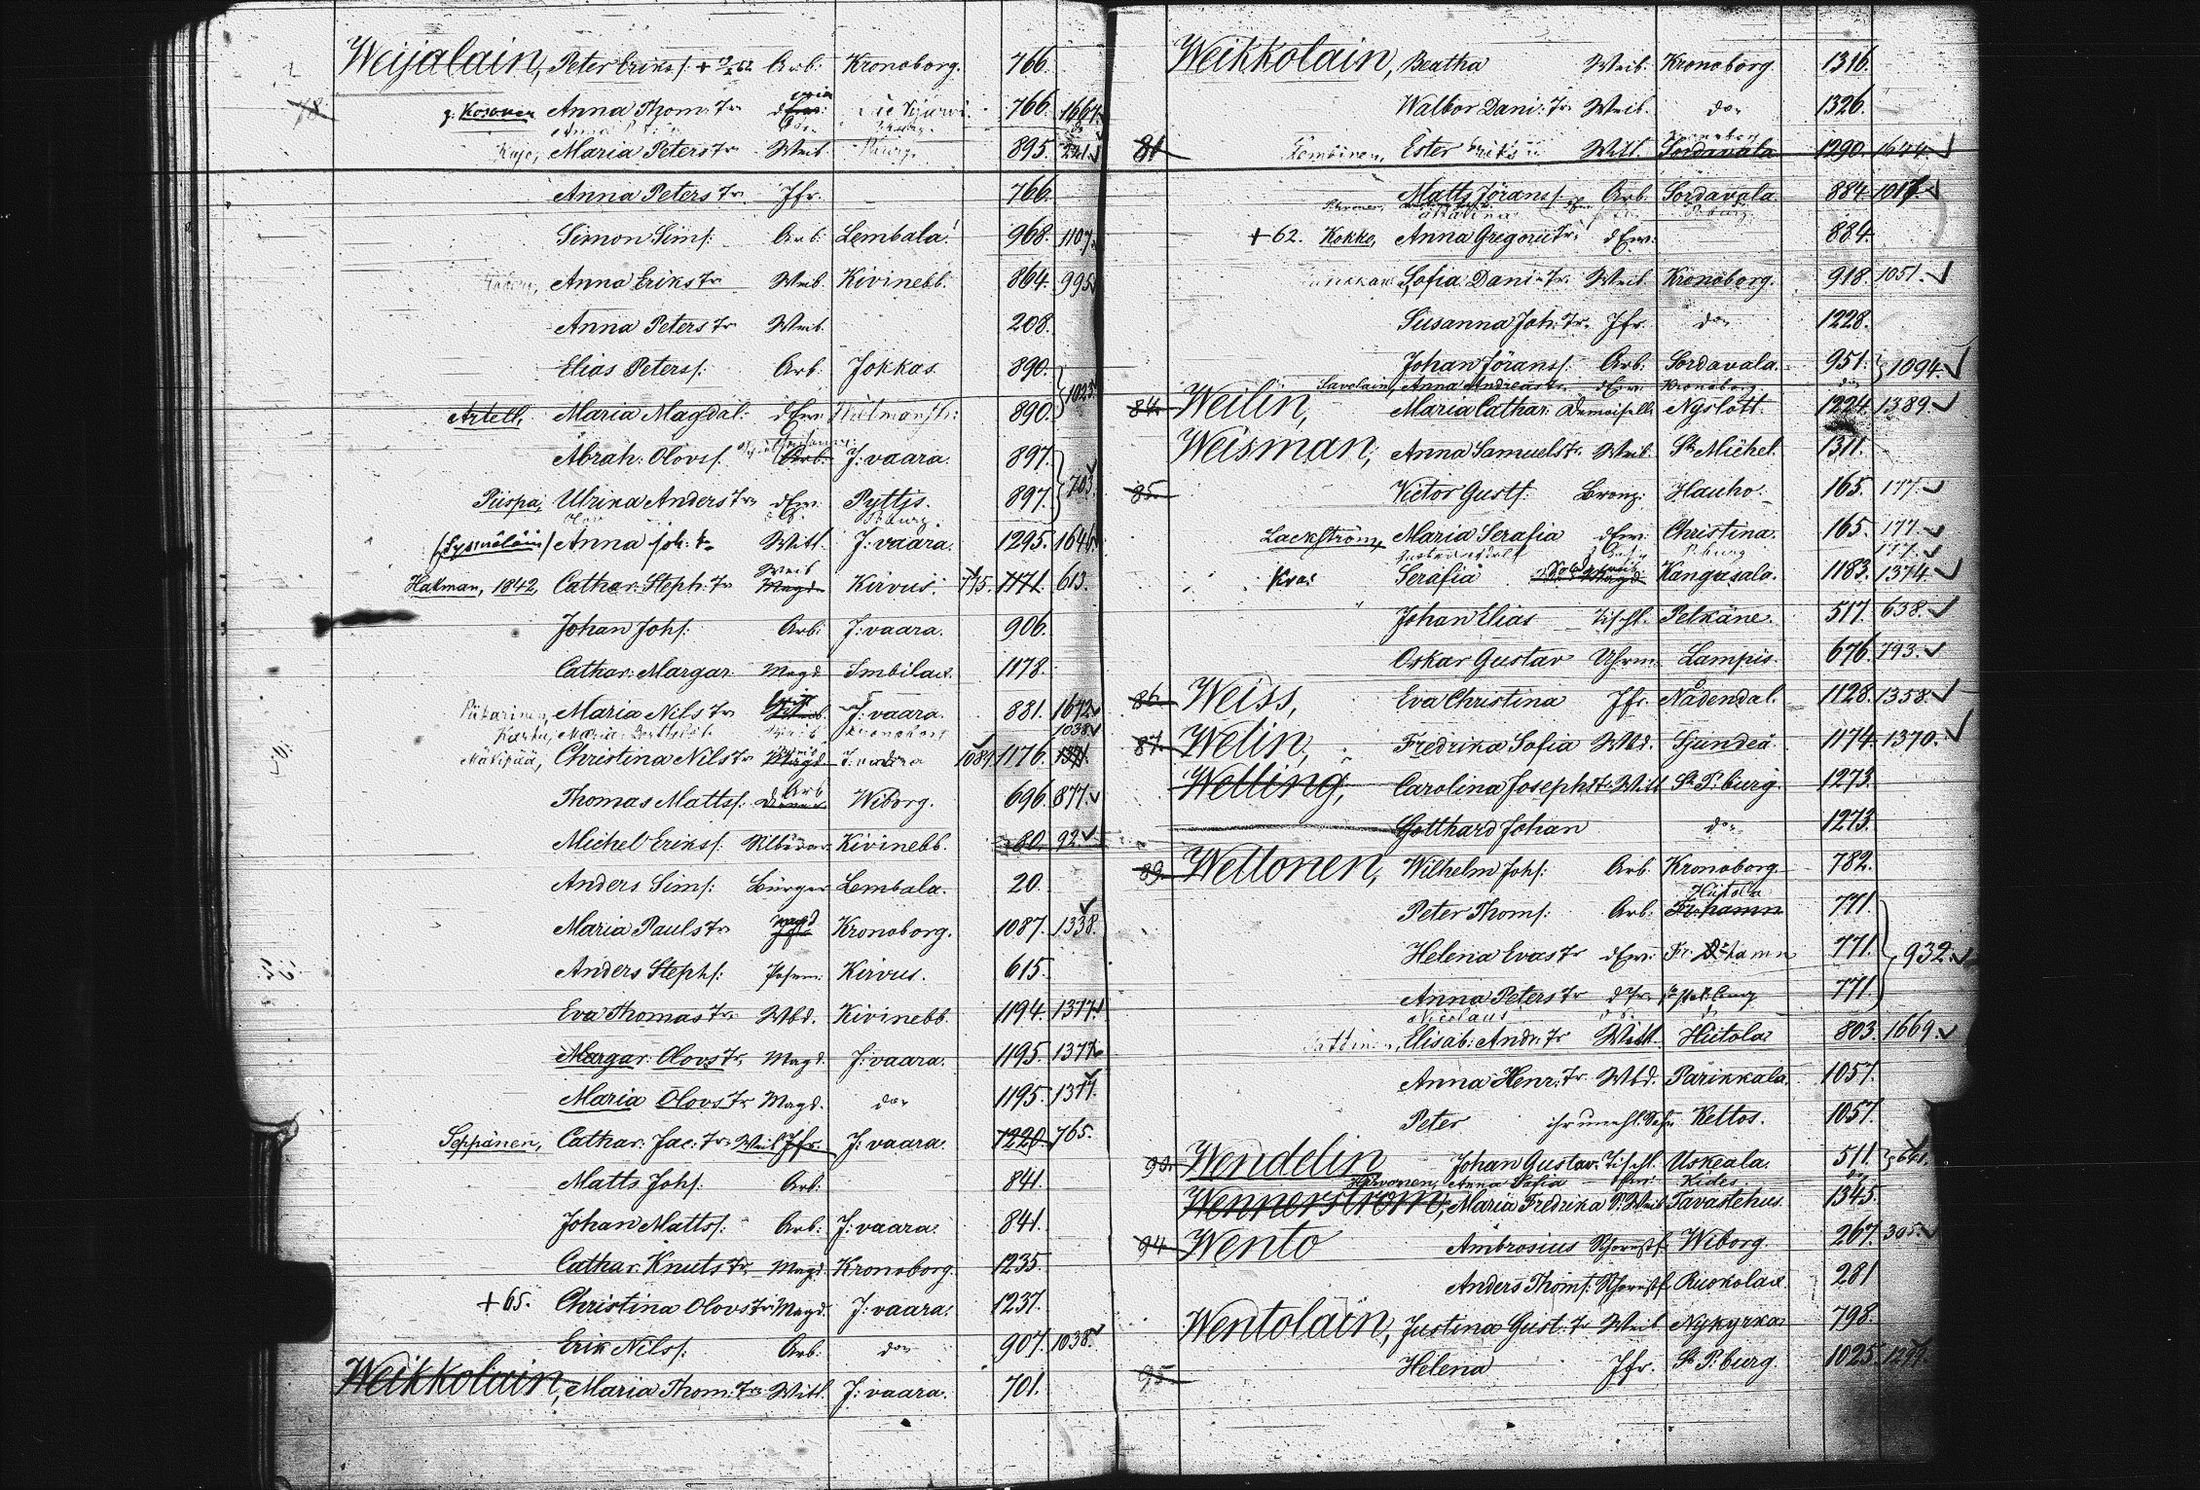 Weijalain, Peter Eriks f: + Arb: Kronoborg. 766.
78
g. Kosonen Anna Thom: Tr 766. 1667.
Maria Peters Tr Weib. 895. 241.
Anna Peters Tr. Jfr. 766.
Simon Sims f: Arb. Lembala. 968. 1107.
Anna Eriks Tr Weib. Kivinebb. 864. 995.
Anna Peters Tr Weib. 208.
Elias Peters f: Arb. Jokkas. 890.
Aztell, Maria Magdal: dErw: 890. 1023.
Abrah: Olovs f. Arb. J: vaara. 897.
Piispa, Ulrika Anders Tr dErw. Pyttis. 897. 703.
(Sysmäläin) Anna Joh: Tr Witt. J: vaara. 1295. 1646.
Hakman, 1842, Cathar: Steph: Tr Weib Magd. Kirvus. 715. 1171. 613.
Johan Johs f: Arb: J: vaara. 906.
Cathar: Margar: Magd. Imbilax. 1178.
Maria Nils Tr J: vaara. 881. 1672.
1038.
Mätipää, Christina Nils Tr Magd. J: vaara 1089. 1176. 1371.
Thomas Matts f: Arb Wiborg. 696. 877.
Michel Eriks f. Kivinebb. 80. 92.
Anders Sims f: Bürger Lembala. 20.
Maria Pauls Tr magd Jfr Kronoborg. 1087. 1338.
Anders Stephs f: Kirvus. 615.
Eva Thomas Tr. Wbd. Kivinebb. 1194. 1377.
Margar: Olovs Tr. Magd. J: vaara. 1195. 1377.
Maria Olovs Tr Magd. do 1195. 1377.
Seppänen, Cathar: Jac: Tr. Weib Jfr. J: vaara. 1220. 765.
Matts Johs f: Arb: 841.
Johan Matts f: Arb: J: vaara. 841.
Cathar: Knuts Tr. Magd. Kronoborg. 1235.
+ 65. Christina Olovs Tr Magd. J: vaara. 1237.
Erik Nils f. Arb. do 907. 1038.
Weikkolain, Maria Thom: Tr Witt. J: vaara. 701.
Weikkolain, Beatha Weib. Kronoborg. 1316.
Walbor Dani: Tr Weib. do 1326.
81 Ester Eriks Tr Witt. Sordavala 1290. 1644.
Matts Jörans f. Arb. Sordavala. 884. 1017.
+ 62. Kokko, Anna Gregorii Tr. dErw: 884.
Sofia Dani: Tr. Weib. Kronoborg. 918. 1051.
Susanna Joh: Tr. Jfr. do 1228.
Johan Jörans f. Arb: Sordavala. 951. 1094.
Savolain, Anna Andreas Tr. dErw. Kronoborg. do
84. Weilin, Maria Cathar: Demoiselle Nyslott. 1224. 1389.
Weisman, Anna Samuels Tr. Weib. St. Michel. 1311.
85. Victor Gust f. Bronz: Hauho. 165. 177.
Lackström, Maria Serafia dErw: Christina. 165. 177.
177.
Serafia Kangasala. 1183. 1374.
Johan Elias Tischl. Pelkäne. 517. 638.
Oskar Gustav Uhrm. Lampis. 676. 793.
86 Weiss, Eva Christina Jfr. Nådendal. 1128. 1358.
87. Welin, Fredrika Sofia Wbd. Sjundeå 1174. 1370.
Welling, Carolina Josephst: Witt St. P: burg. 1273.
Gotthard Johan do 1273.
89. Wellonen, Wilhelm Johs f: Arb. Kronoborg. 782.
Peter Thoms f: Arb: Hiitola Fr: hamn 771.
Helena Evas Tr dErw: Fr: hamn 771. 932.
Anna Peters Tr dTr. 771.
Nicolaus
Elisab: Andr: Tr Witt. Hiitola 803. 1669.
Anna Henr: Tr Wbd. Parikkala. 1057.
Peter ihr unehl. Sohn Kettos. 1057.
93. Wendelin Johan Gustav Tischl. Uskeala. 511. 661.
Anna Sofia Kides do
Wennerström, Maria Fredrika Weib Tavastehus. 1345.
94 Wento Ambrosius Wiborg. 267. 305.
Anders Thoms f: Ruokolax 281
Wentolain, Justina Gust: Tr Weib Nykyrka 798.
95 Helena Jfr. St. P: burg. 1025.